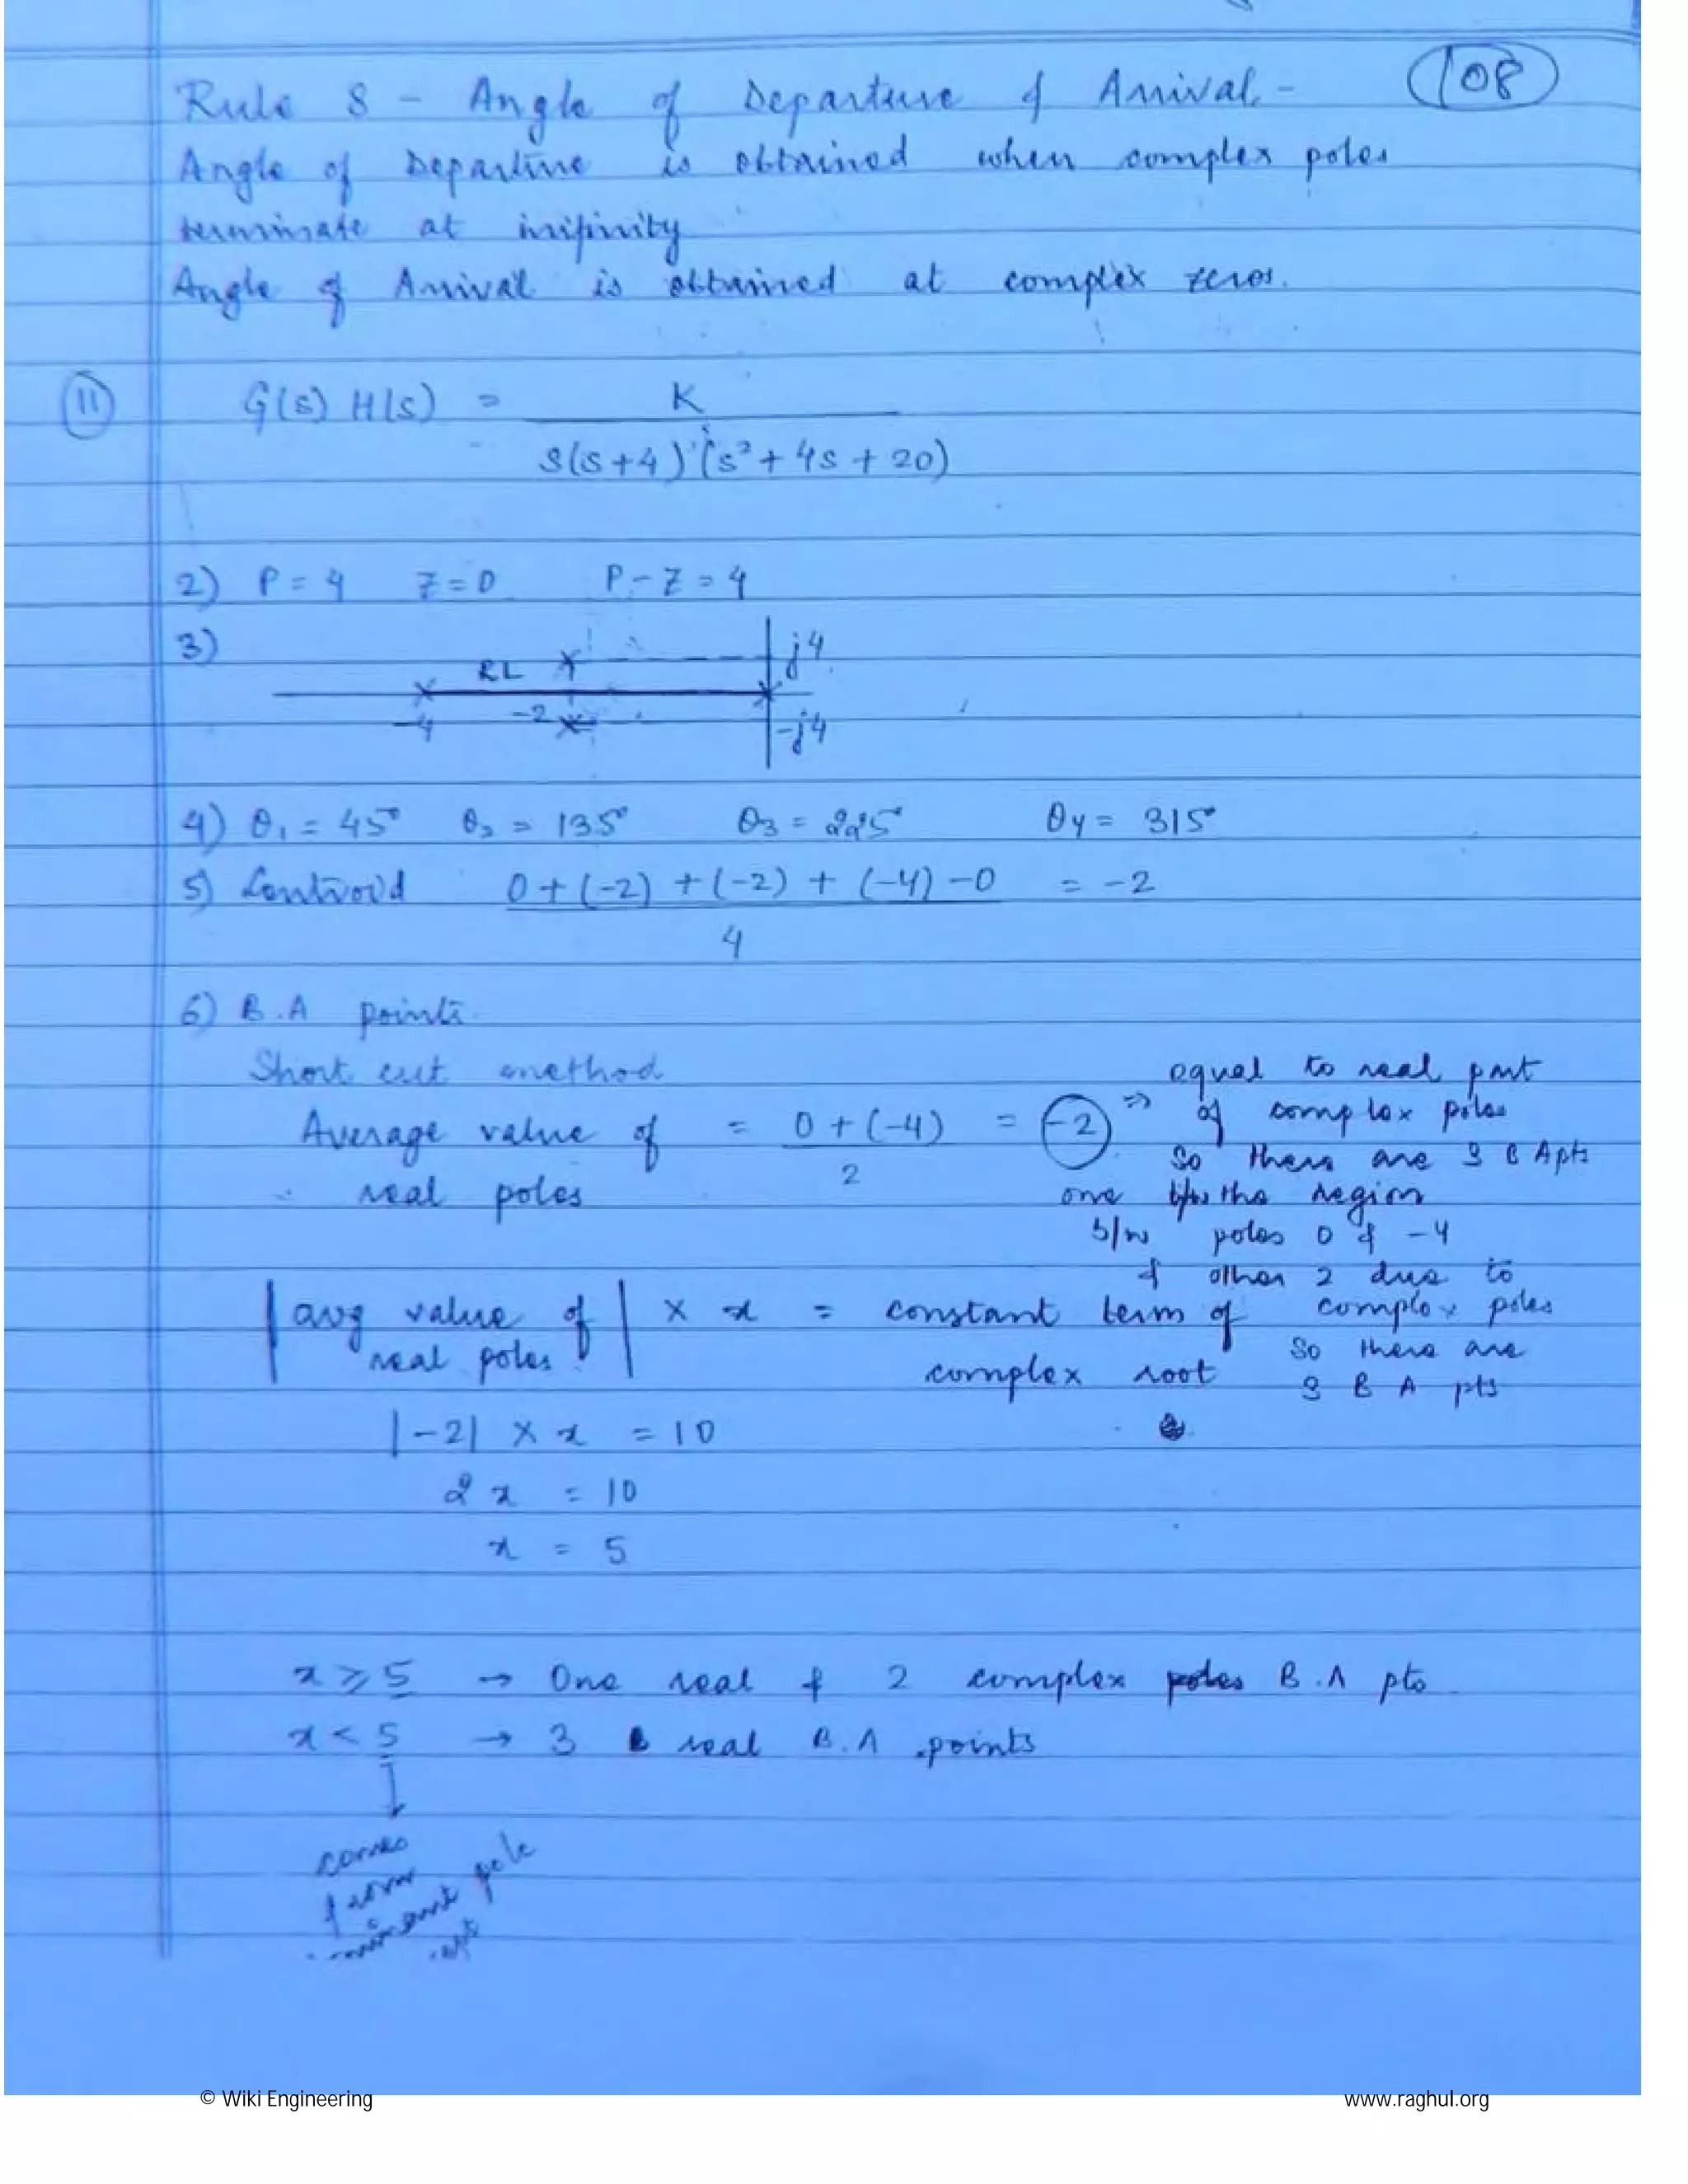 108
Rule 8 - Angle of Departure & Arrival -
Angle of Departure is obtained when complex poles
terminate at infinity
Angle of Arrival is obtained at complex zeros.
11
G(s) H(s) = K
s(s+4) (s² + 4s + 20)
2) P = 4 Z = 0 P - Z = 4
3)
RL j4
-4 -2 -j4
4) θ₁ = 45° θ₂ = 135° θ3 = 225° θ4 = 315°
5) Centroid 0 + (-2) + (-2) + (-4) - 0 = -2
4
6) B.A points.
Short cut method
Average value of = 0 + (-4) = -2
real poles 2
⇒ equal to real part
of complex poles
So there are 3 B A pts
one the region
b/w poles 0 & -4
& other 2 due to
complex poles
So there are
3 B A pts
| avg value of real poles | × x = constant term of
complex root
|-2| × x = 10
2x = 10
x = 5
x ≥ 5 → One real & 2 complex B.A pts
x < 5 → 3 real B.A points
comes
from
pole
© Wiki Engineering
www.raghul.org